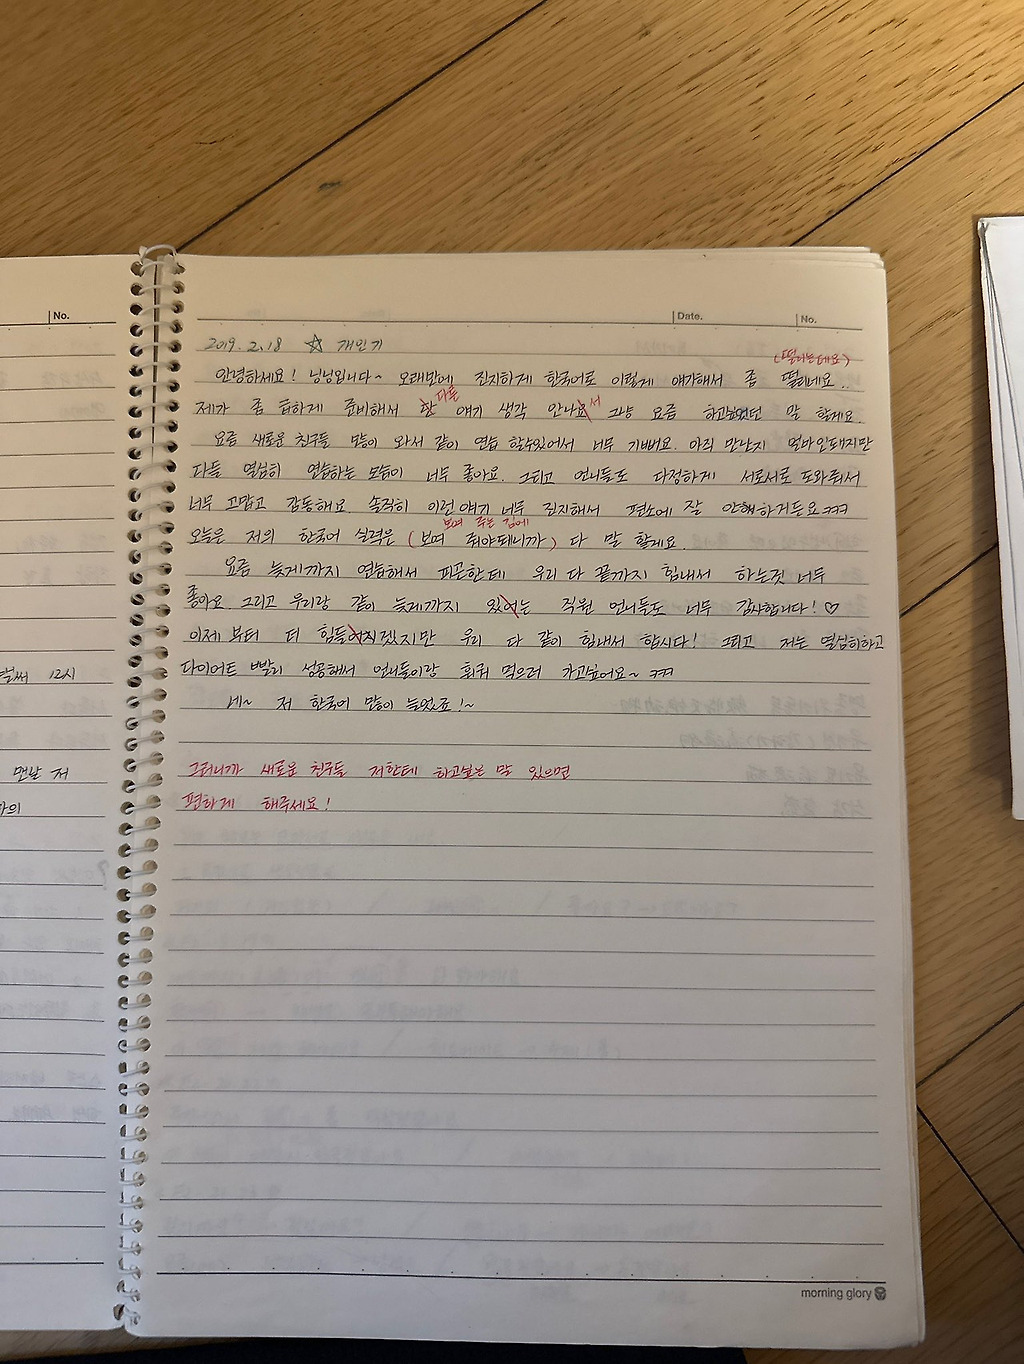 No.
Date. No.
2019. 2. 18 ☆ 개인기
(떨리는데요)
안녕하세요! 닝닝입니다~ 오래만에 진지하게 한국어로 이렇게 얘기해서 좀 떨리네요..
다른
제가 좀 급하게 준비해서 할 얘기 생각 안나요서 그냥 요즘 하고싶었던 말 할게요.
요즘 새로운 친구들 많이 와서 같이 연습 할수있어서 너무 기뻐요. 아직 만난지 얼마안돼지만
다들 열심히 연습하는 모습이 너무 좋아요. 그리고 언니들도 다정하게 서로서로 도와줘서
너무 고맙고 감동해요. 솔직히 이런 얘기 너무 진지해서 평소에 잘 안해하거든요 ㅋㅋㅋ
보여 주는 김에
오늘은 저의 한국어 실력은 (보여 줘야되니까) 다 말 할게요.
요즘 늦게까지 연습해서 피곤한데 우리 다 끝까지 힘내서 하는것 너무
좋아요. 그리고 우리랑 같이 늦게까지 있어는 직원 언니들도 너무 감사합니다! ♡
이제 부터 더 힘들어지겠지만 우리 다 같이 힘내서 합시다! 그리고 저는 열심히하고
다이어트 빨리 성공해서 언니들이랑 훠궈 먹으러 가고싶어요~ ㅋㅋㅋ
네~ 저 한국어 많이 늘었죠!~
그러니까 새로운 친구들 저한테 하고싶은 말 있으면
편하게 해주세요!
벌써 12시
맨날 저
morning glory